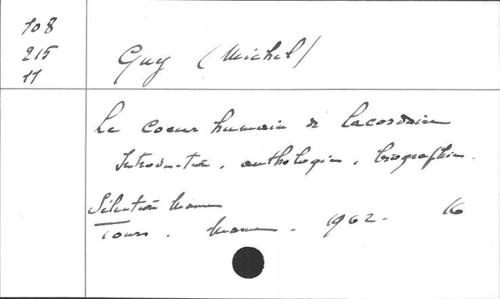 108
215
11
Guy (Michel)
Le coeur humain de Lacordaire
Introduction, anthologie, biographie.
Sélection Mame
Tours. Mame. 1962. 16